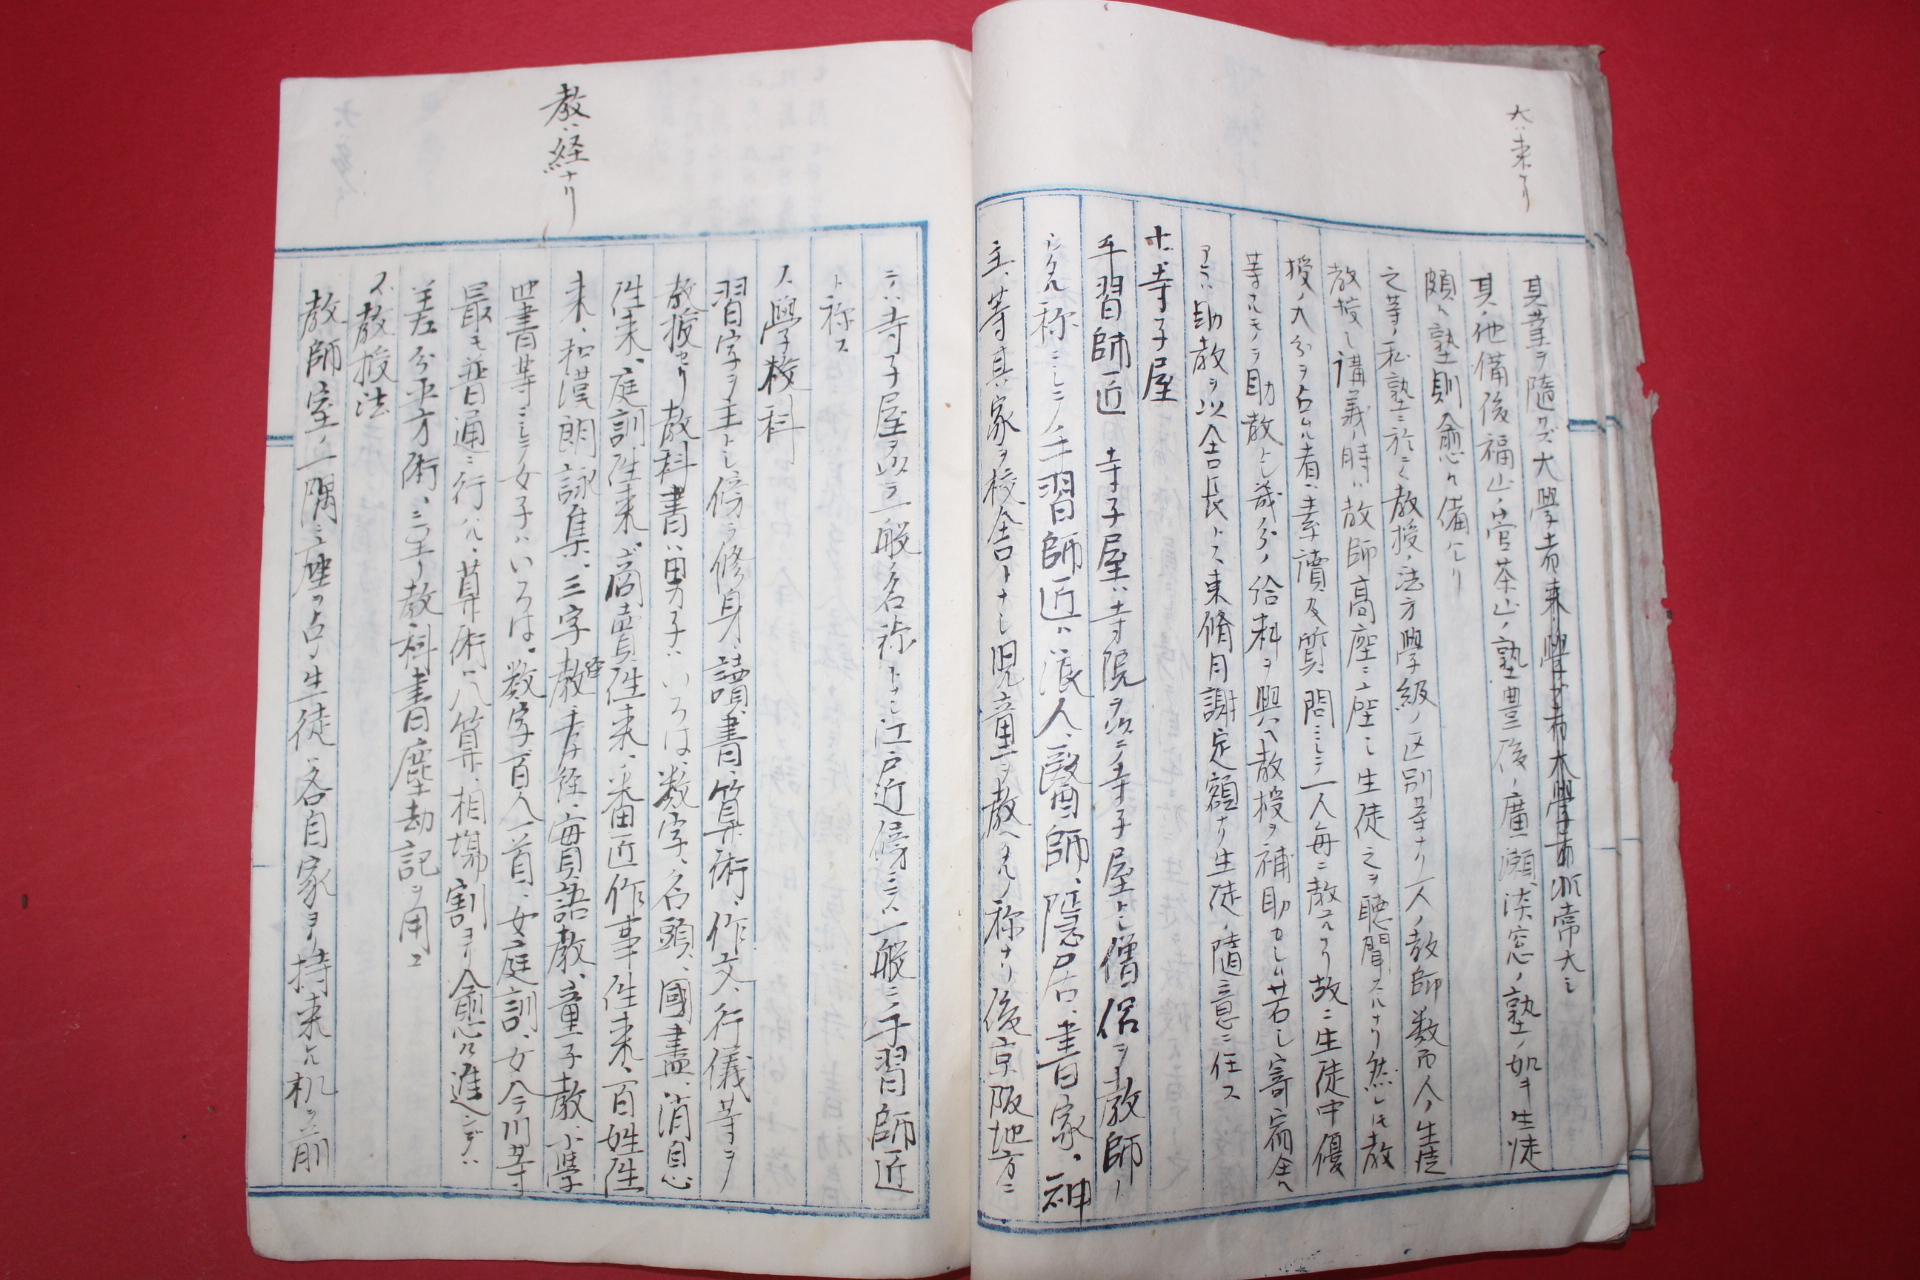 大ハ来ナリ
其業ヲ随ヘズ大學者来ル學ブ者大學者非常大ニ
其ノ他備後福山ノ菅茶山ノ塾豊後ノ廣瀬淡窓ノ塾ノ如キ生徒
頗ル塾則愈々備ハレリ
之等ノ私塾ニ於テ教授ノ法方學級ノ区別等ナリ一人ノ教師数百人ノ生徒
教授シ講義ノ時ハ教師高座ニ座シ生徒之ヲ聴聞スルナリ然レ共教
授ノ大分ヲ占ムル者ハ素讀及質問ニシテ一人毎ニ教エタリ故ニ生徒中優
等ナルモノヲ助教トシ幾分ノ給料ヲ與ヘ教授ヲ補助セシム若シ寄宿舎
アラバ助教ヲ以舎長トス束脩月謝定額ナリ生徒ノ随意ニ任ス
十、寺子屋
手習師匠 寺子屋ハ寺院ヲ以テ寺子屋トシ僧侶ヲ教師ノ
名称ニシテ手習師匠ハ浪人、醫師、隠居、書家、神
主、等其家ヲ校舎トナシ児童ヲ教ヘタル称ナリ後京阪地方ニ
教ハ経ナリ
テハ寺子屋ヲ以テ一般名称トナシ江戸近傍ニテハ一般ニ手習師匠
ト称ス
八、學校科
習字ヲ主トシ傍ラ修身、讀書、算術、作文、行儀等ヲ
教授セリ教科書ハ男子ハいろは、数字、名頭、國盡、消息
往来、庭訓往来、商賣往来、番匠作事往来、百姓往
来、和漢朗詠集、三字教、孝経、實語教、童子教、小學
四書等ニシテ女子ハいろは、数字百人一首、女庭訓、女今川等
最モ普通ニ行ハル、算術ハ八算、相場割ヨリ愈々進ンデハ
差分平方術ニ至リ教科書塵劫記ヲ用ユ
ス、教授法
教師室ノ一隅ニ座ヲ占メ生徒ハ各自家ヨリ持来レル机ヲ前